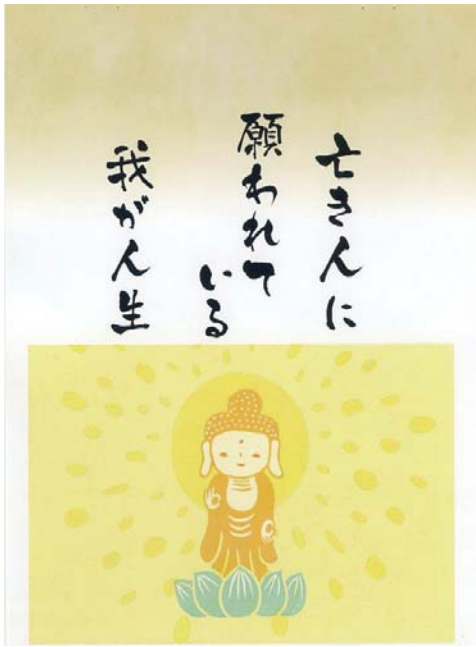 亡き人に
願われて
いる
我が人生